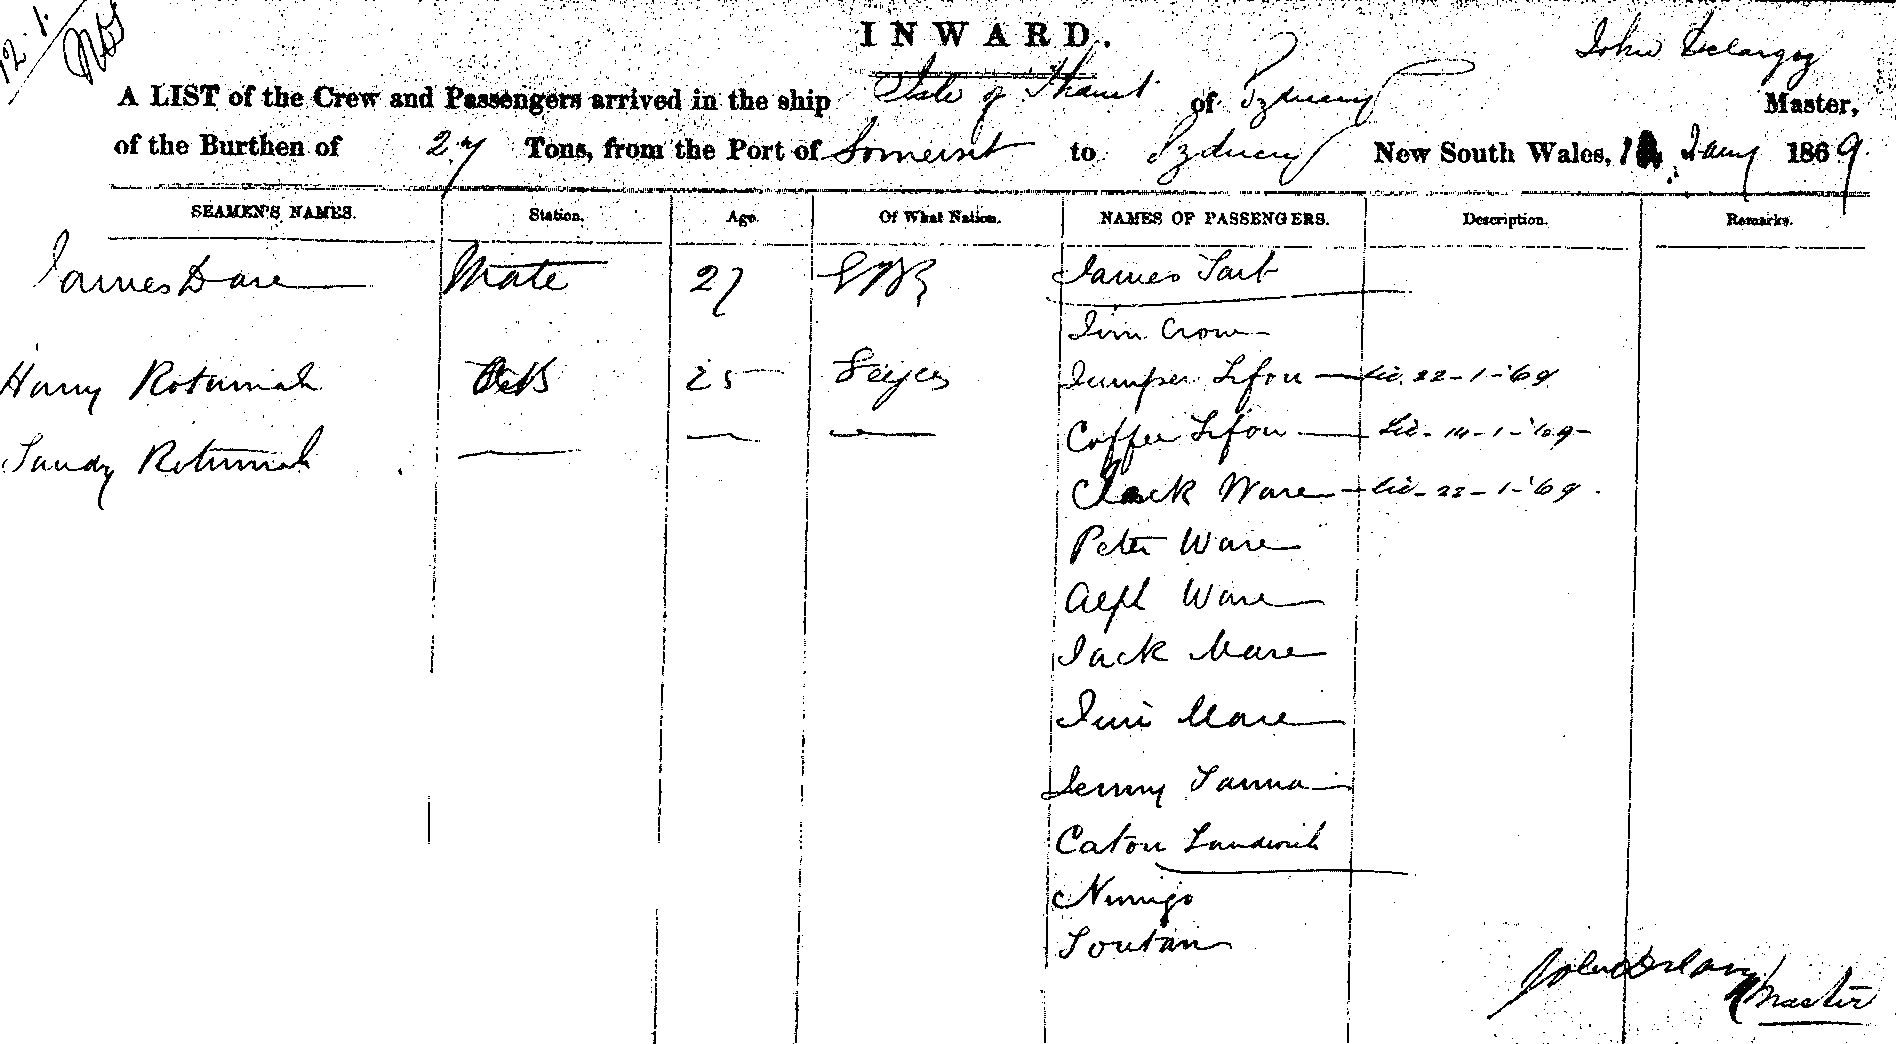 12.1.
INWARD.
John Delargy
A LIST of the Crew and Passengers arrived in the ship Isle of Thanet of Sydney Master,
of the Burthen of 27 Tons, from the Port of Somerset to Sydney New South Wales, Jany 1869.
SEAMEN'S NAMES. Station. Age. Of What Nation. NAMES OF PASSENGERS. Description. Remarks.
James Dare Mate 27 James Tait
Jim Crow
Harry Rotumah 25 Jumper Lifou 22-1-'69
Sandy Rotumah Coffee Lifou 14-1-'69
Jack Ware 22-1-'69.
Peter Ware
Alph Ware
Jack Mare
Jim Mare
Jenny Tanna
Caton Sandwich
Nimigo
Toutan
John Delargy Master